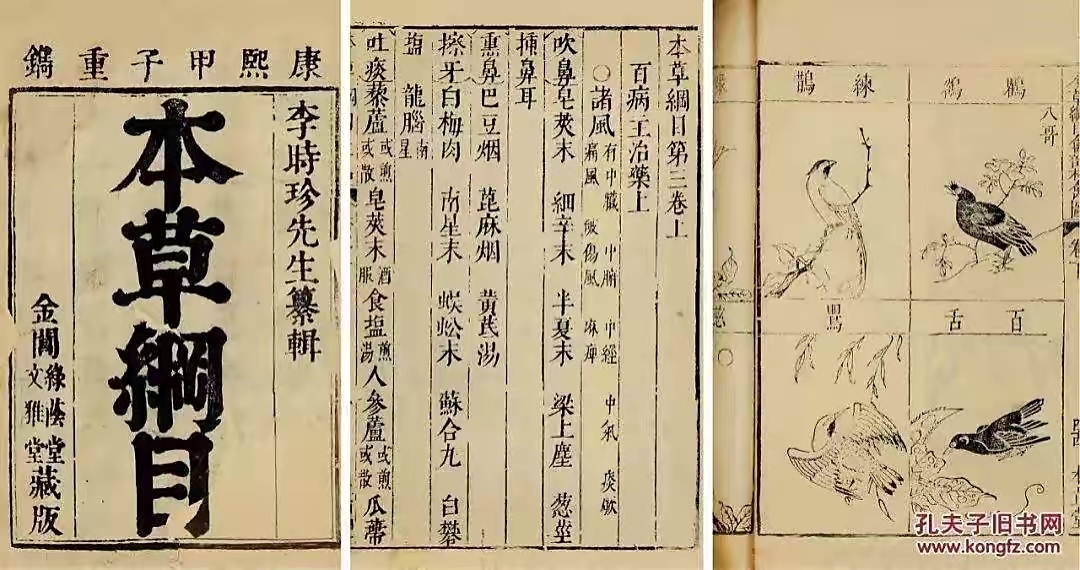 康熙甲子重鐫
李時珍先生纂輯
本草綱目
金閶
綠蔭堂
文雅堂
藏版
本草綱目第三卷上
百病主治藥上
○諸風 有中臟 中腑 中經 中氣 痰厥 痛風 破傷風 麻痺
吹鼻皂莢末 細辛末 半夏末 梁上塵 葱莖
插鼻耳
熏鼻巴豆烟 蓖麻烟 黃芪湯
擦牙白梅肉 南星末 蜈蚣末 蘇合丸 白礬
鹽 龍腦南星
吐痰藜蘆或煎或散 皂莢末酒服 食塩煎湯 人參蘆或煎或散 瓜蒂
鸜鵒
八哥
練鵲
百舌
鶯
孔夫子旧书网
www.kongfz.com